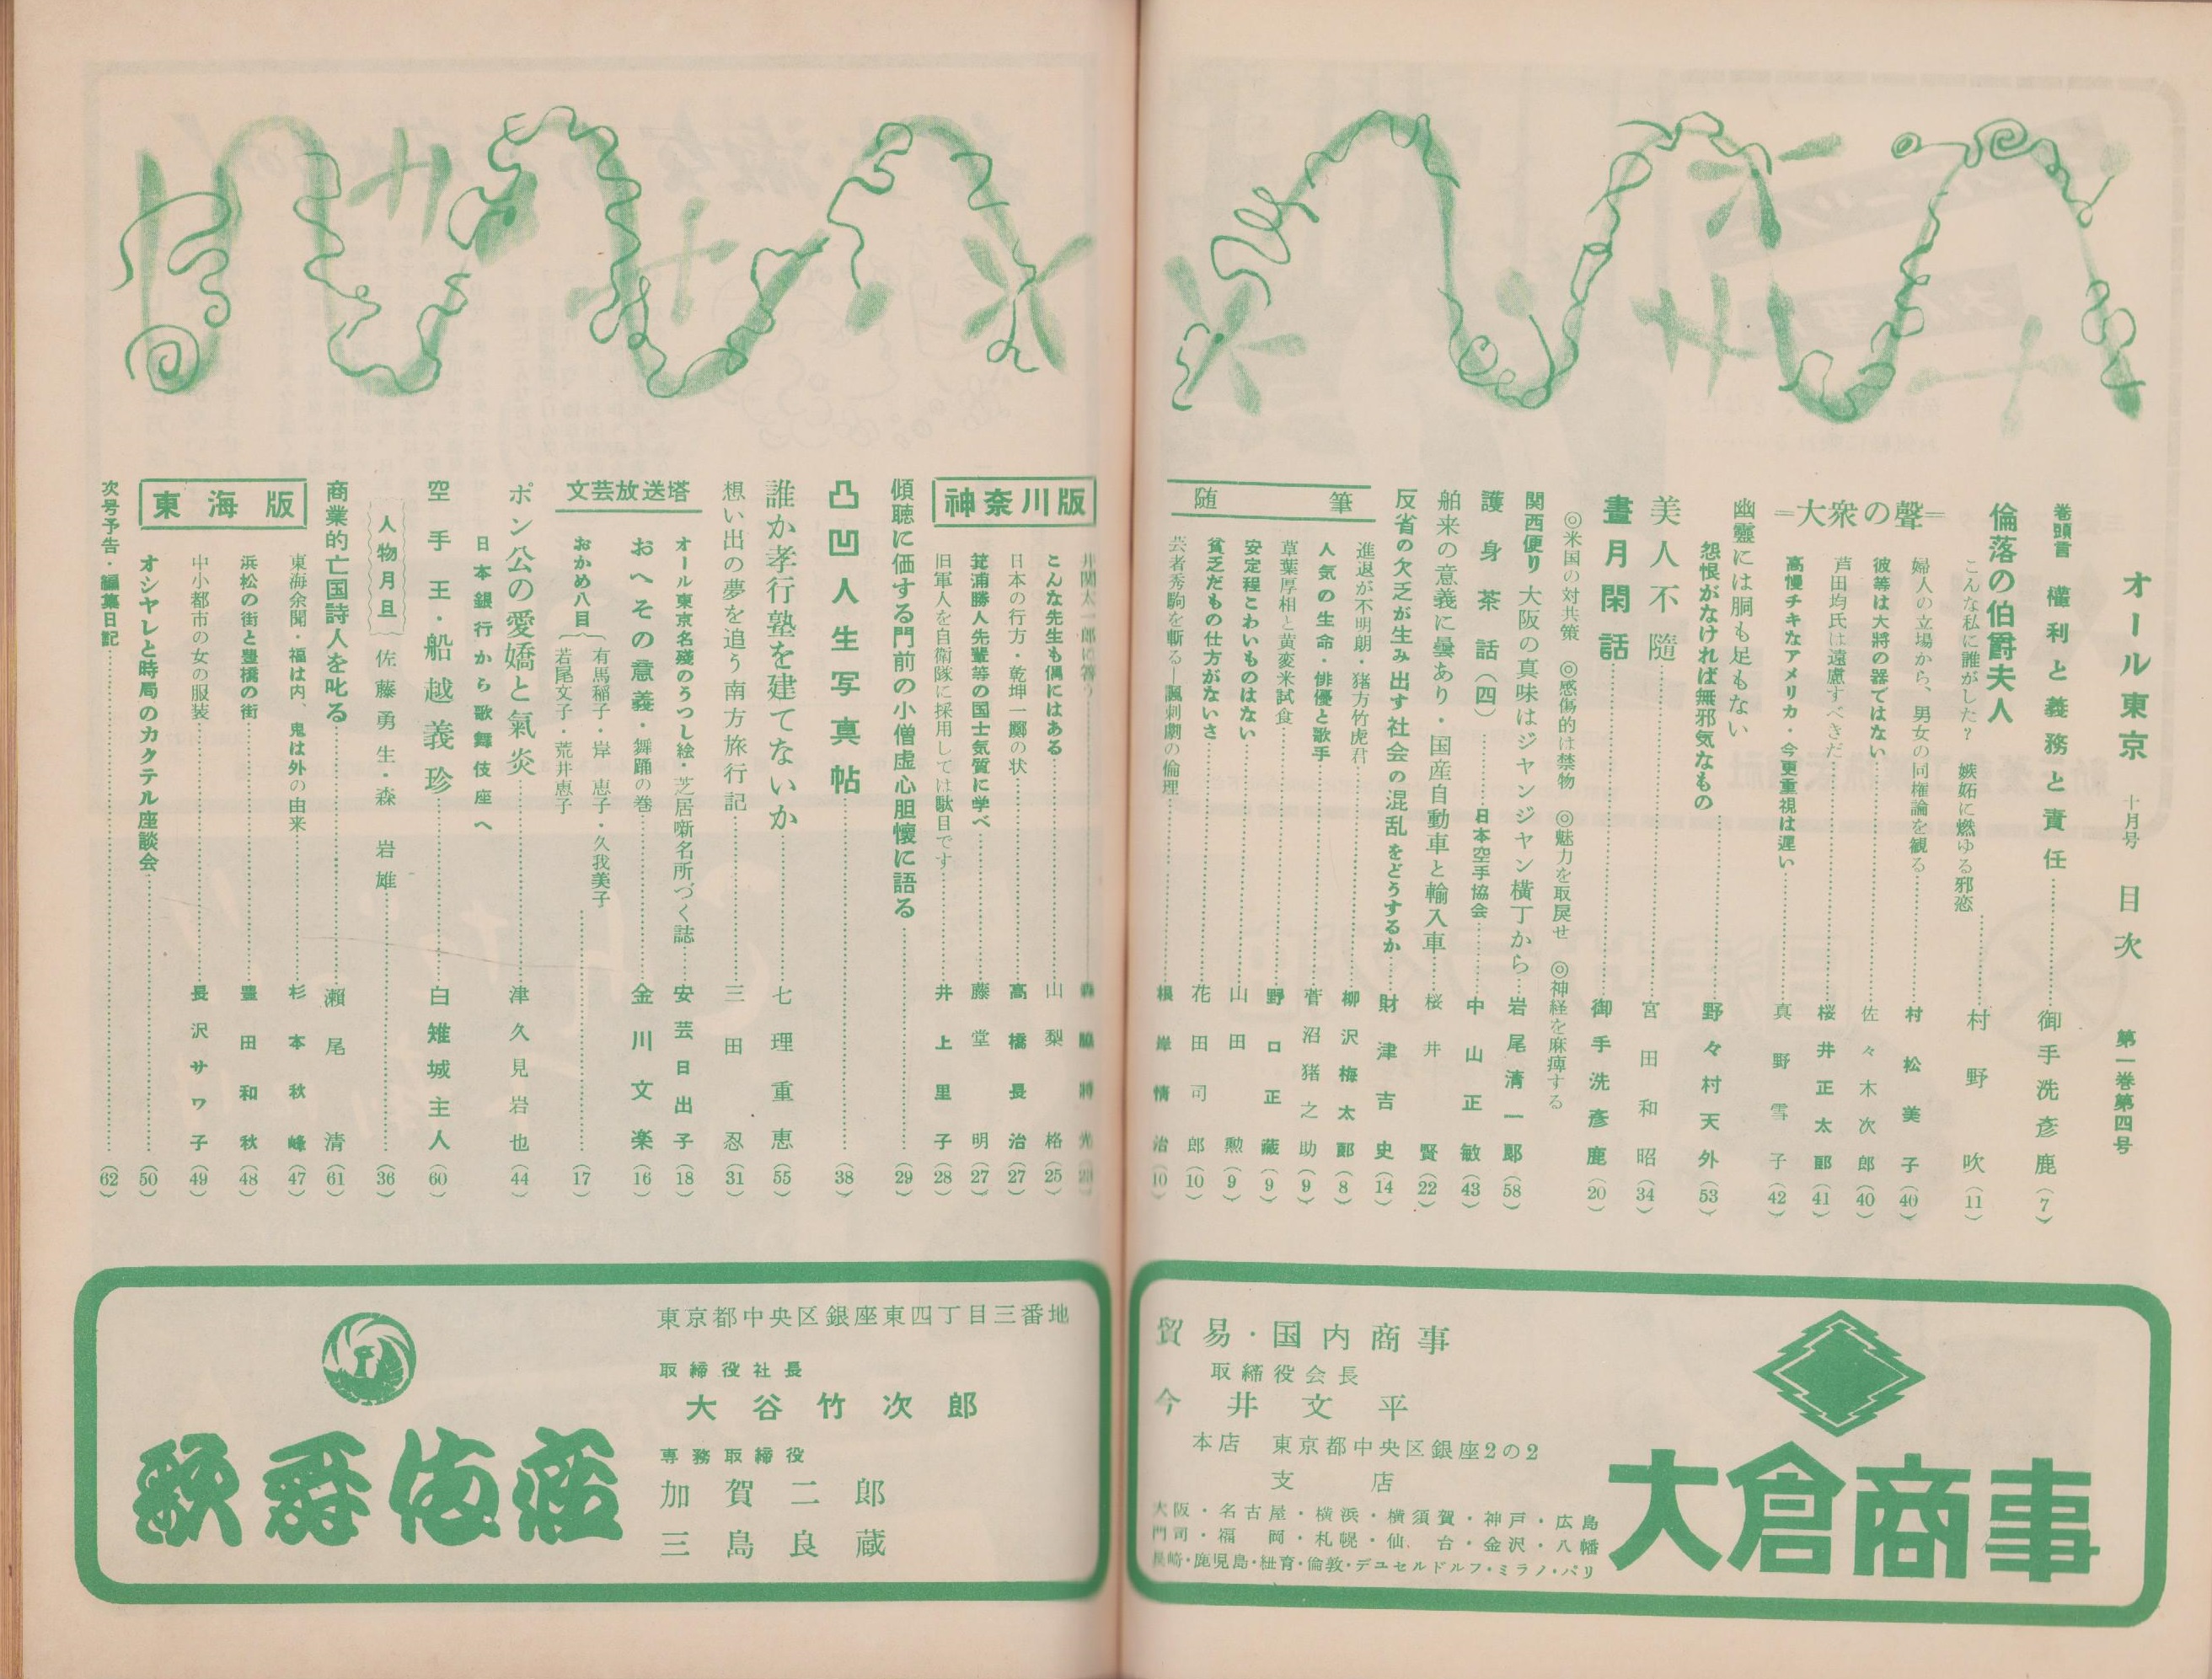 オール東京 十月号 目次 第一巻第四号
巻頭言 權利と義務と責任 御手洗彦鹿 (7)
倫落の伯爵夫人
こんな私に誰がした? 嫉妬に燃ゆる邪恋 村野吹 (11)
=大衆の聲=
婦人の立場から、男女の同権論を観る 村松美子 (40)
彼等は大將の器ではない 佐々木次郎 (40)
芦田均氏は遠慮すべきだ 桜井正太郎 (41)
高慢チキなアメリカ・今更重視は遅い 真野雪子 (42)
幽靈には胴も足もない
怨恨がなければ無邪気なもの 野々村天外 (53)
美人不隨 宮田和昭 (34)
晝月閑話 御手洗彦鹿 (20)
◎米国の対共策 ◎感傷的は禁物 ◎魅力を取戻せ ◎神経を麻痺する
関西便り 大阪の真味はジャンジャン横丁から 岩尾清一郎 (58)
護身茶話(四) 日本空手協会 中山正敏 (43)
舶来の意義に曇あり・国産自動車と輸入車 桜井賢 (22)
反省の欠乏が生み出す社会の混乱をどうするか 財津吉史 (14)
随筆
進退が不明朗・猪方竹虎君 柳沢梅太郎 (8)
人気の生命・俳優と歌手 菅沼猪之助 (9)
草葉厚相と黄変米試食 野口正蔵 (9)
安定程こわいものはない 山田勲 (9)
貧乏だもの仕方がないさ 花田司郎 (10)
芸者秀駒を斬る―諷刺劇の倫理 根岸情治 (10)
神奈川版
井関太一郎に答う
こんな先生も偶にはある 山梨格 (25)
日本の行方・乾坤一擲の状 高橋長治 (27)
箕浦勝人先輩等の国士気質に学べ 藤堂明 (27)
旧軍人を自衛隊に採用しては駄目です 井上里子 (28)
傾聴に価する門前の小僧虚心胆懐に語る (29)
凸凹人生写真帖 (38)
誰か孝行塾を建てないか 七理重恵 (55)
想い出の夢を追う南方旅行記 三田忍 (31)
文芸放送塔
オール東京名殘のうつし絵・芝居噺名所づく誌 安芸日出子 (18)
おへその意義・舞踊の巻 金川文楽 (16)
おかめ八目 有馬稲子・岸恵子・久我美子
若尾文子・荒井恵子 (17)
ポン公の愛嬌と氣炎 津久見岩也 (44)
日本銀行から歌舞伎座へ
空手王・船越義珍 白雉城主人 (60)
人物月旦 佐藤勇生・森岩雄 (36)
商業的亡国詩人を叱る 瀬尾清 (61)
東海版
東海余聞・福は内、鬼は外の由来 杉本秋峰 (47)
浜松の街と豊橋の街 豊田和秋 (48)
中小都市の女の服装 長沢サワ子 (49)
オシヤレと時局のカクテル座談会 (50)
次号予告・編集日記 (62)
大倉商事
貿易・国内商事
取締役会長
今井文平
本店 東京都中央区銀座2の2
支店
大阪・名古屋・横浜・横須賀・神戸・広島
門司・福岡・札幌・仙台・金沢・八幡
長崎・鹿児島・紐育・倫敦・デユセルドルフ・ミラノ・パリ
東京都中央区銀座東四丁目三番地
取締役社長
大谷竹次郎
専務取締役
加賀二郎
三島良蔵
歌舞伎座